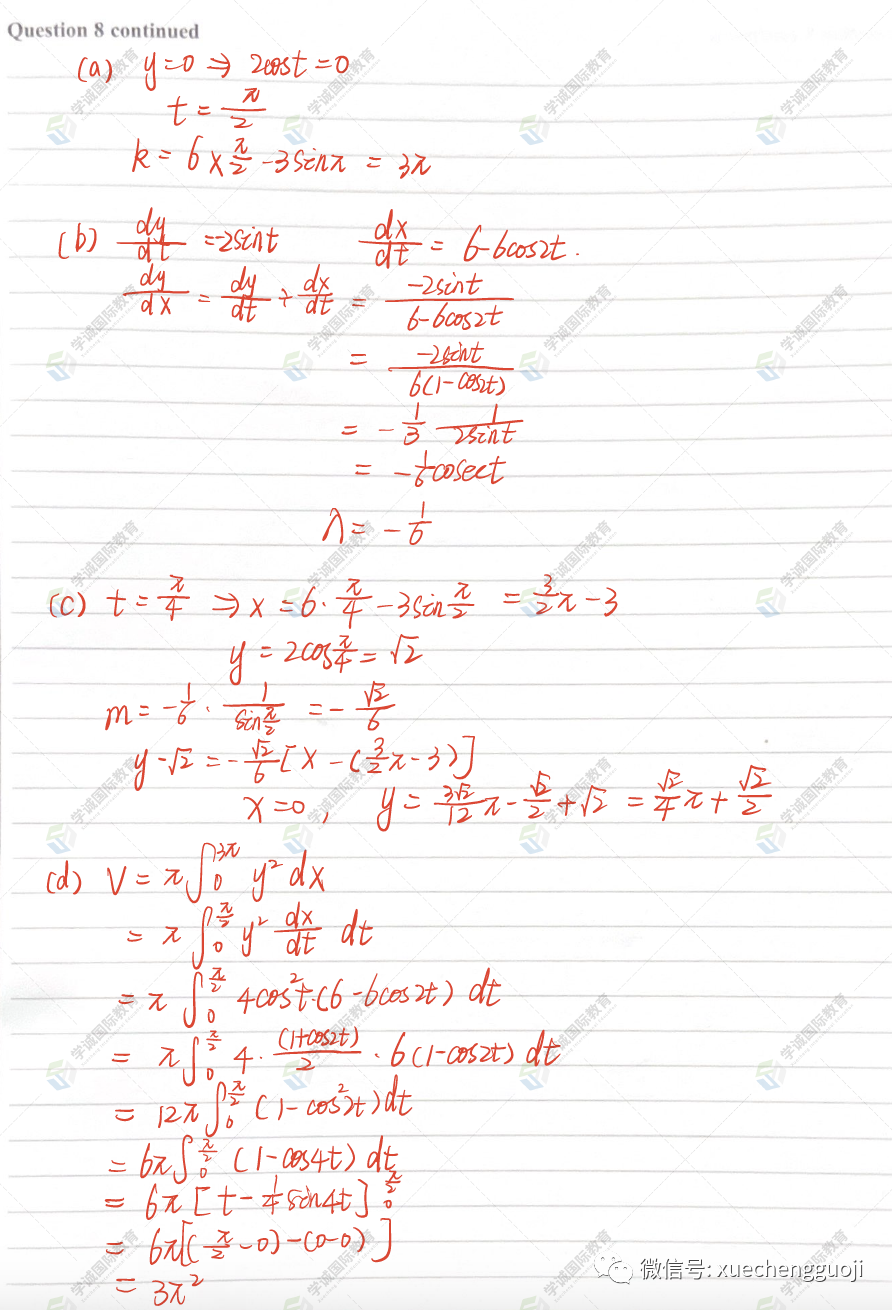 Question 8 continued
(a) y=0 ⇒ 2cost=0
t = π/2
k = 6×π/2 -3sinπ = 3π
(b) dy/dt = -2sint dx/dt = 6-6cos2t.
dy/dx = dy/dt ÷ dx/dt = -2sint/(6-6cos2t)
= -2sint/6(1-cos2t)
= -1/3 1/2sint
= -1/6 cosect
λ = -1/6
(c) t = π/4 ⇒ x = 6·π/4 - 3sin π/2 = 3/2 π - 3
y = 2cos π/4 = √2
m = -1/6 · 1/sin π/2 = -√2/6
y-√2 = -√2/6 [x-(3/2 π-3)]
x=0, y = 3√2/12 π - √2/2 + √2 = √2/4 π + √2/2
(d) V = π∫₀^3π y² dx
= π∫₀^π/2 y² dx/dt dt
= π∫₀^π/2 4cos²t·(6-6cos2t) dt
= π∫₀^π/2 4·(1+cos2t)/2 · 6(1-cos2t) dt
= 12π∫₀^π/2 (1-cos²2t) dt
= 6π∫₀^π/2 (1-cos4t) dt
= 6π [t - 1/4 sin4t]₀^π/2
= 6π[(π/2 -0)-(0-0)]
= 3π²
微信号: xuechengguoji
学诚国际教育